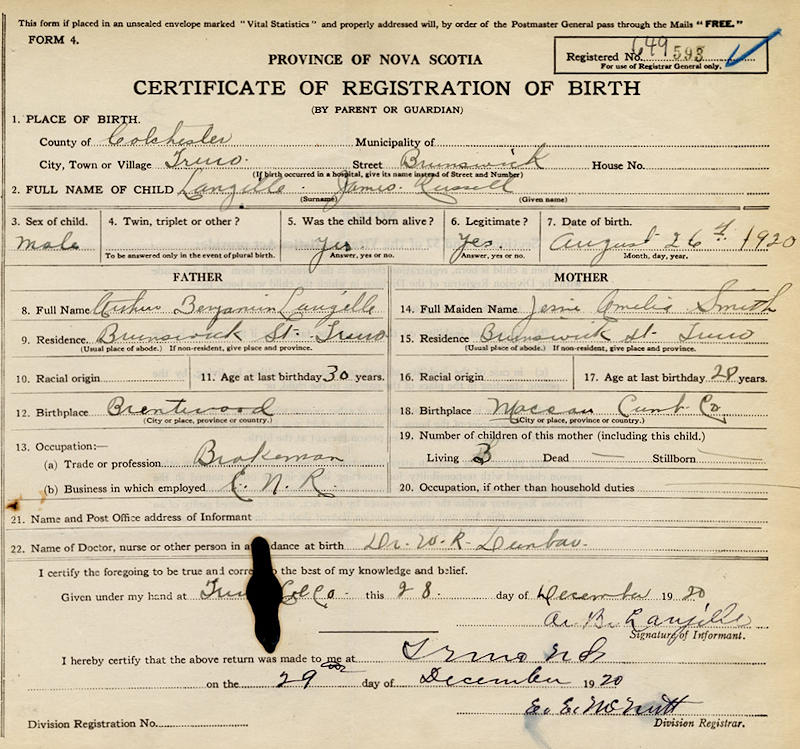 This form if placed in an unsealed envelope marked "Vital Statistics" and properly addressed will, by order of the Postmaster General pass through the Mails "FREE."
FORM 4.
PROVINCE OF NOVA SCOTIA
Registered No. 649 593
For use of Registrar General only.
CERTIFICATE OF REGISTRATION OF BIRTH
(BY PARENT OR GUARDIAN)
1. PLACE OF BIRTH.
County of Colchester Municipality of
City, Town or Village Truro. Street Brunswick House No.
(If birth occurred in a hospital, give its name instead of Street and Number)
2. FULL NAME OF CHILD Langille. James. Russell
(Surname) (Given name)
3. Sex of child. 4. Twin, triplet or other? 5. Was the child born alive? 6. Legitimate? 7. Date of birth.
Male yes. Yes. August 26th 1920
To be answered only in the event of plural birth. Answer, yes or no. Answer, yes or no. Month, day, year.
FATHER MOTHER
8. Full Name Arthur Benjamin Langille 14. Full Maiden Name Jessie Amelia Smith
9. Residence Brunswick St. Truro 15. Residence Brunswick St. Truro
(Usual place of abode.) If non-resident, give place and province. (Usual place of abode.) If non-resident, give place and province.
10. Racial origin 11. Age at last birthday 30 years. 16. Racial origin 17. Age at last birthday 28 years.
12. Birthplace Brentwood 18. Birthplace Maccan Cumb. Co
(City or place, province or country.) (City or place, province or country.)
13. Occupation:— 19. Number of children of this mother (including this child.)
(a) Trade or profession Brakeman Living 3 Dead — Stillborn —
(b) Business in which employed C. N. R. 20. Occupation, if other than household duties
21. Name and Post Office address of Informant
22. Name of Doctor, nurse or other person in a dance at birth Dr. W. R. Dunbar.
I certify the foregoing to be true and corre to the best of my knowledge and belief.
Given under my hand at Tru Col Co. this 28. day of December 1920
A. B. Langille
Signature of Informant.
I hereby certify that the above return was made to me at Truro N.S.
on the 29th day of December 1920
E. E. McNutt
Division Registration No. Division Registrar.